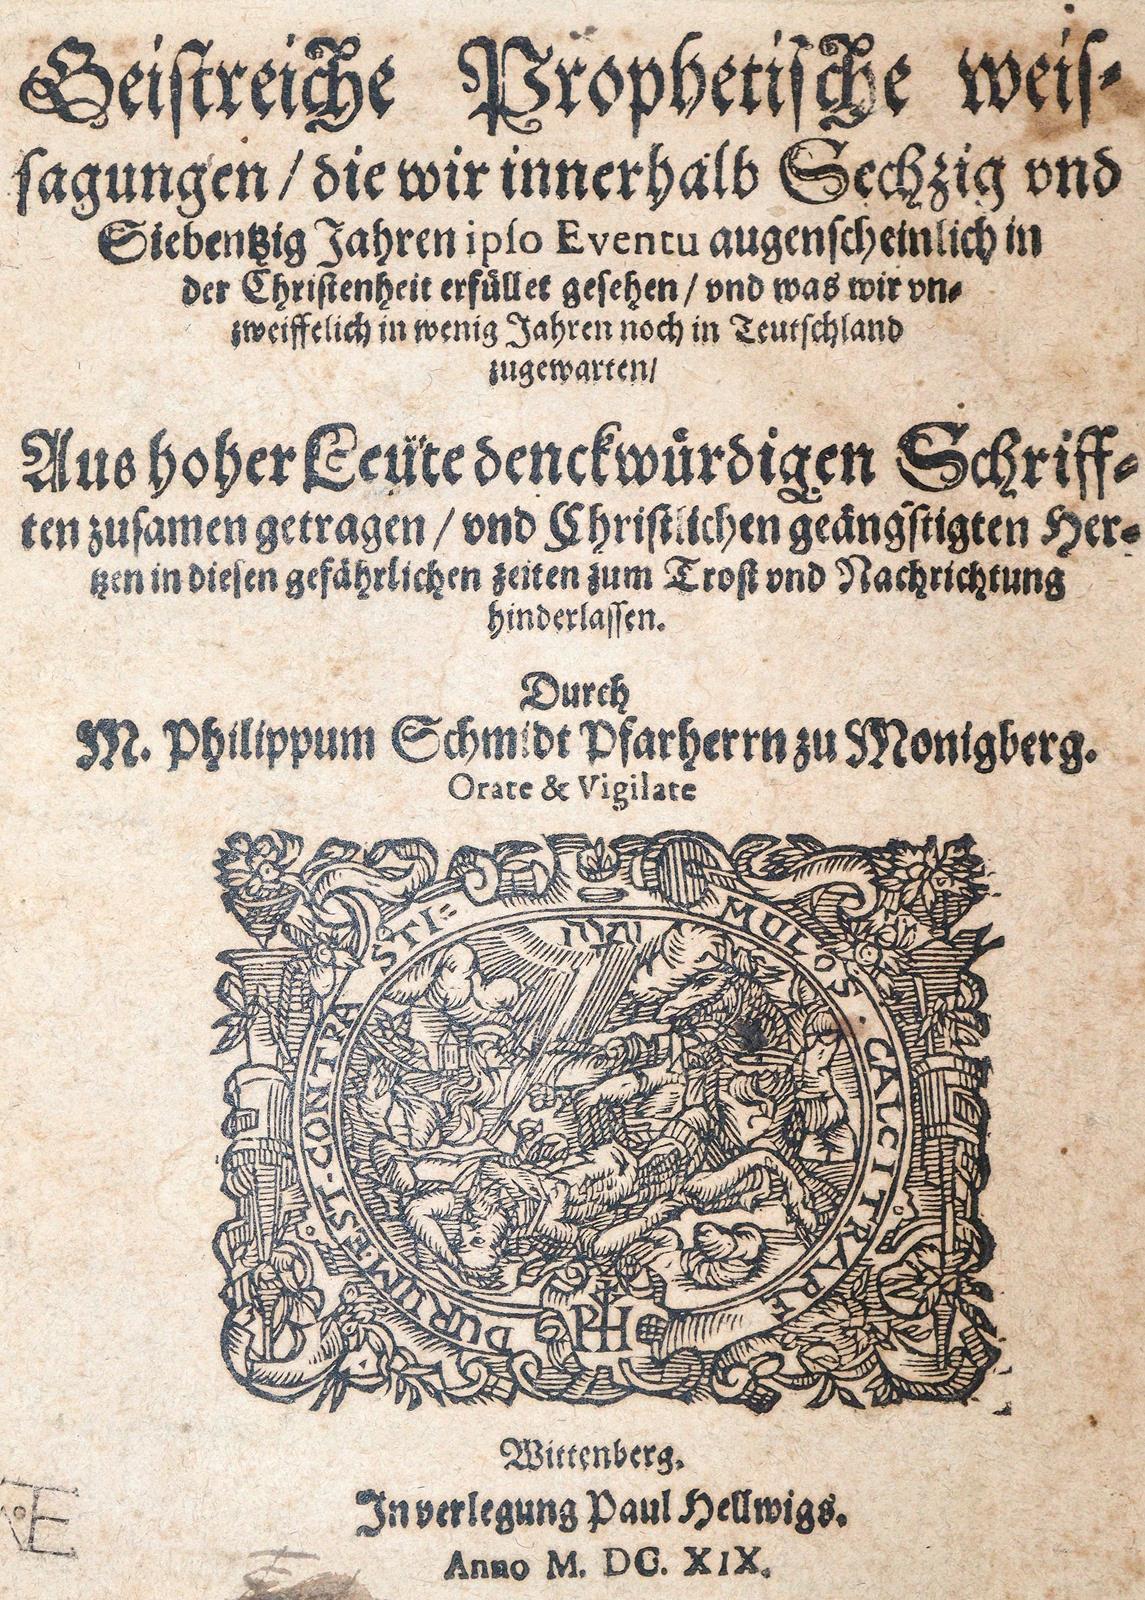 Geistreiche Prophetische weis-
sagungen / die wir innerhalb Sechzig vnd
Siebentzig Jahren ipso Eventu augenscheinlich in
der Christenheit erfüllet gesehen / vnd was wir vn-
zweiffelich in wenig Jahren noch in Teutschland
zugewarten /
Aus hoher Leüte denckwürdigen Schriff-
ten zusamen getragen / vnd Christlichen geängstigten Her-
tzen in diesen gefährlichen zeiten zum Trost vnd Nachrichtung
hinderlassen.
Durch
M. Philippum Schmidt Pfarherrn zu Monigberg.
Orate & Vigilate
DURUM · EST · CONTRA STI= MULOS · CALCITRARE
יהוה
PH
Wittenberg.
In verlegung Paul Hellwigs.
Anno M. DC. XIX.